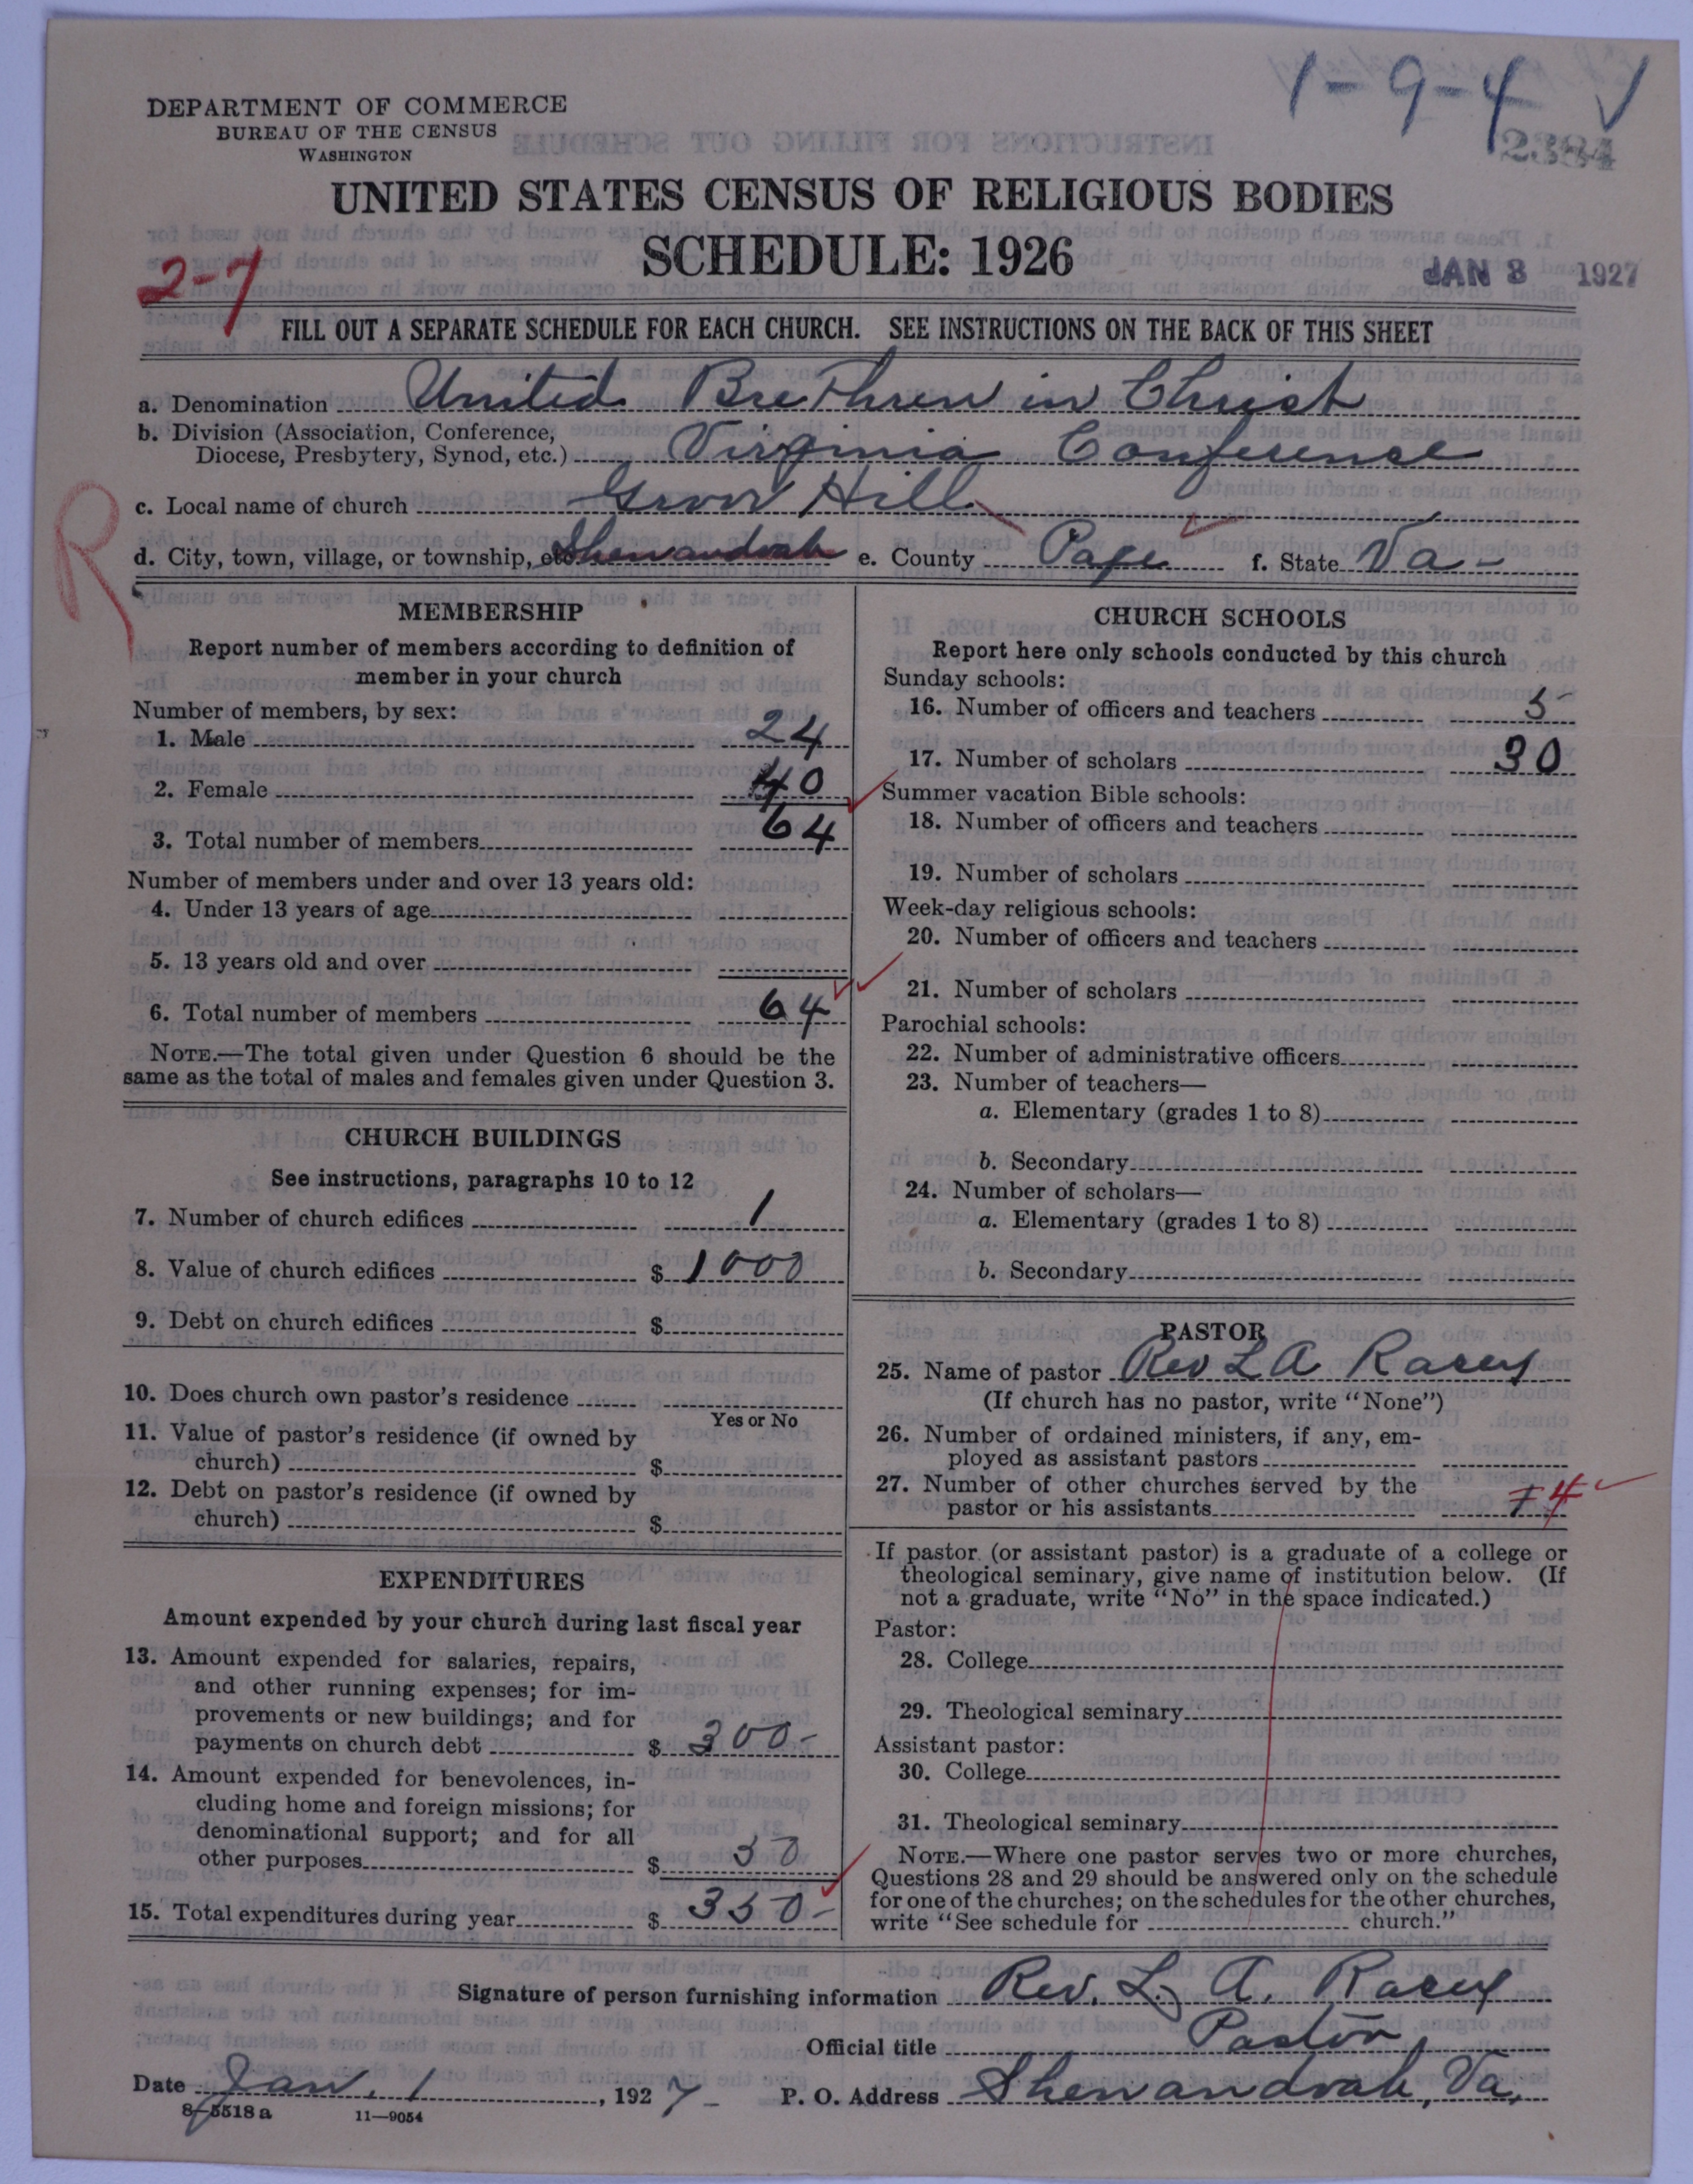 1-9-4 ✓
DEPARTMENT OF COMMERCE
BUREAU OF THE CENSUS
WASHINGTON
2384
UNITED STATES CENSUS OF RELIGIOUS BODIES
SCHEDULE: 1926
2-7
JAN 8 1927
FILL OUT A SEPARATE SCHEDULE FOR EACH CHURCH. SEE INSTRUCTIONS ON THE BACK OF THIS SHEET
a. Denomination United Brethren in Christ
b. Division (Association, Conference,
Diocese, Presbytery, Synod, etc.) Virginia Conference
c. Local name of church Grove Hill
R
d. City, town, village, or township, etc. Shenandoah e. County Page f. State Va-
MEMBERSHIP
Report number of members according to definition of
member in your church
Number of members, by sex:
1. Male 24
2. Female 40
3. Total number of members 64
Number of members under and over 13 years old:
4. Under 13 years of age
5. 13 years old and over
6. Total number of members 64
NOTE.—The total given under Question 6 should be the
same as the total of males and females given under Question 3.
CHURCH BUILDINGS
See instructions, paragraphs 10 to 12
7. Number of church edifices 1
8. Value of church edifices $ 1000
9. Debt on church edifices $
10. Does church own pastor's residence
Yes or No
11. Value of pastor's residence (if owned by
church) $
12. Debt on pastor's residence (if owned by
church) $
EXPENDITURES
Amount expended by your church during last fiscal year
13. Amount expended for salaries, repairs,
and other running expenses; for im-
provements or new buildings; and for
payments on church debt $ 300-
14. Amount expended for benevolences, in-
cluding home and foreign missions; for
denominational support; and for all
other purposes $ 50
15. Total expenditures during year $ 350-
CHURCH SCHOOLS
Report here only schools conducted by this church
Sunday schools:
16. Number of officers and teachers 5
17. Number of scholars 30
Summer vacation Bible schools:
18. Number of officers and teachers
19. Number of scholars
Week-day religious schools:
20. Number of officers and teachers
21. Number of scholars
Parochial schools:
22. Number of administrative officers
23. Number of teachers—
a. Elementary (grades 1 to 8)
b. Secondary
24. Number of scholars—
a. Elementary (grades 1 to 8)
b. Secondary
PASTOR
25. Name of pastor Rev L A Racey
(If church has no pastor, write "None")
26. Number of ordained ministers, if any, em-
ployed as assistant pastors
27. Number of other churches served by the
pastor or his assistants 7 4
If pastor (or assistant pastor) is a graduate of a college or
theological seminary, give name of institution below. (If
not a graduate, write "No" in the space indicated.)
Pastor:
28. College
29. Theological seminary
Assistant pastor:
30. College
31. Theological seminary
NOTE.—Where one pastor serves two or more churches,
Questions 28 and 29 should be answered only on the schedule
for one of the churches; on the schedules for the other churches,
write "See schedule for church."
Signature of person furnishing information Rev. L. A. Racey
Official title Pastor
Date Jan. 1, 1927- P. O. Address Shenandoah, Va,
8-5518 a 11-9054